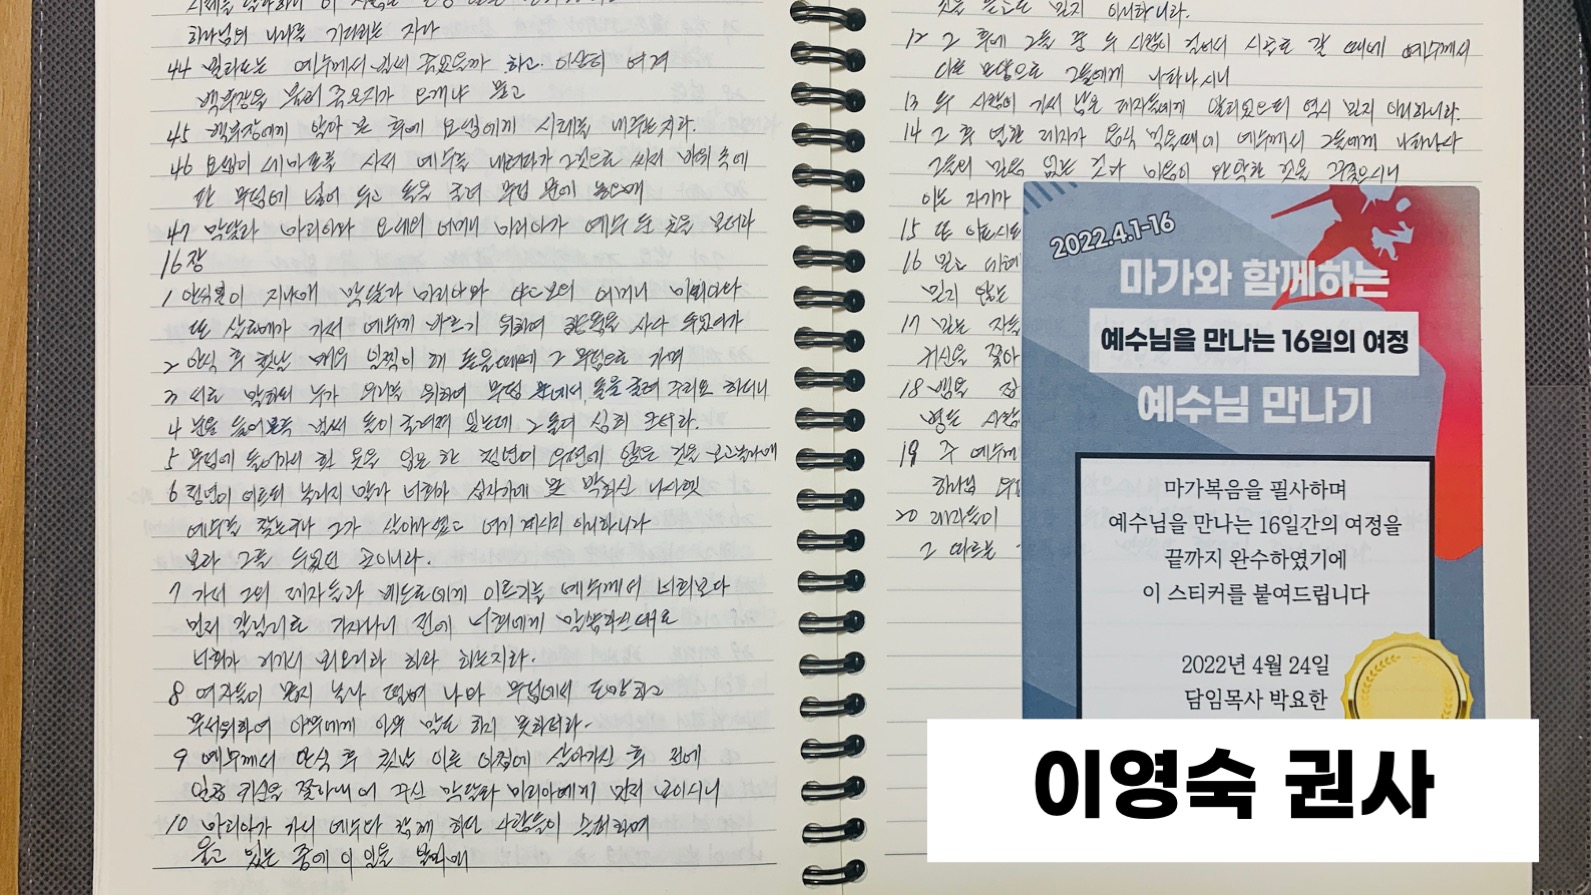 하나님의 나라를 기다리는 자라
44 빌라도는 예수께서 벌써 죽었을까 하고 이상히 여겨
백부장을 불러 죽은지가 오래냐 묻고
45 백부장에게 알아 본 후에 요셉에게 시체를 내주는지라.
46 요셉이 세마포를 사서 예수를 내려다가 그것으로 싸서 바위 속에
판 무덤에 넣어 두고 돌을 굴려 무덤 문에 놓으매
47 막달라 마리아와 요세의 어머니 마리아가 예수 둔 곳을 보더라
16장
1 안식일이 지나매 막달라 마리아와 야고보의 어머니 마리아와
또 살로메가 가서 예수께 바르기 위하여 향품을 사다 두었다가
2 안식 후 첫날 매우 일찍이 해 돋을때에 그 무덤으로 가며
3 서로 말하되 누가 우리를 위하여 무덤 문에서 돌을 굴려 주리요 하더니
4 눈을 들어본즉 벌써 돌이 굴려져 있는데 그 돌이 심히 크더라.
5 무덤에 들어가서 흰 옷을 입은 한 청년이 우편에 앉은 것을 보고 놀라매
6 청년이 이르되 놀라지 말라 너희가 십자가에 못 박히신 나사렛
예수를 찾는구나 그가 살아나셨고 여기 계시지 아니하니라
보라 그를 두었던 곳이니라.
7 가서 그의 제자들과 베드로에게 이르기를 예수께서 너희보다
먼저 갈릴리로 가시나니 전에 너희에게 말씀하신대로
너희가 거기서 뵈오리라 하라 하는지라.
8 여자들이 몹시 놀라 떨며 나와 무덤에서 도망하고
무서워하여 아무에게 아무 말도 하지 못하더라.
9 예수께서 안식 후 첫날 이른 아침에 살아나신 후 전에
일곱 귀신을 쫓아내어 주신 막달라 마리아에게 먼저 보이시니
10 마리아가 가서 예수와 함께 하던 사람들이 슬퍼하며
울고 있는 중에 이 일을 알리매
것을 듣고도 믿지 아니하니라.
12 그 후에 그들 중 두 사람이 걸어서 시골로 갈 때에 예수께서
다른 모양으로 그들에게 나타나시니
13 두 사람이 가서 남은 제자들에게 알리었으되 역시 믿지 아니하니라.
14 그 후 열한 제자가 음식 먹을때에 예수께서 그들에게 나타나사
그들의 믿음 없는 것과 마음이 완악한 것을 꾸짖으시니
이는 자기가
15 또 이르시되
16 믿고 세례
믿지 않는
17 믿는 자들
귀신을 쫓아
18 뱀을 집
병든 사람
19 주 예수께
하나님 우편
20 제자들이
그 따르는
2022.4.1-16
마가와 함께하는
예수님을 만나는 16일의 여정
예수님 만나기
마가복음을 필사하며
예수님을 만나는 16일간의 여정을
끝까지 완수하였기에
이 스티커를 붙여드립니다
2022년 4월 24일
담임목사 박요한
이영숙 권사